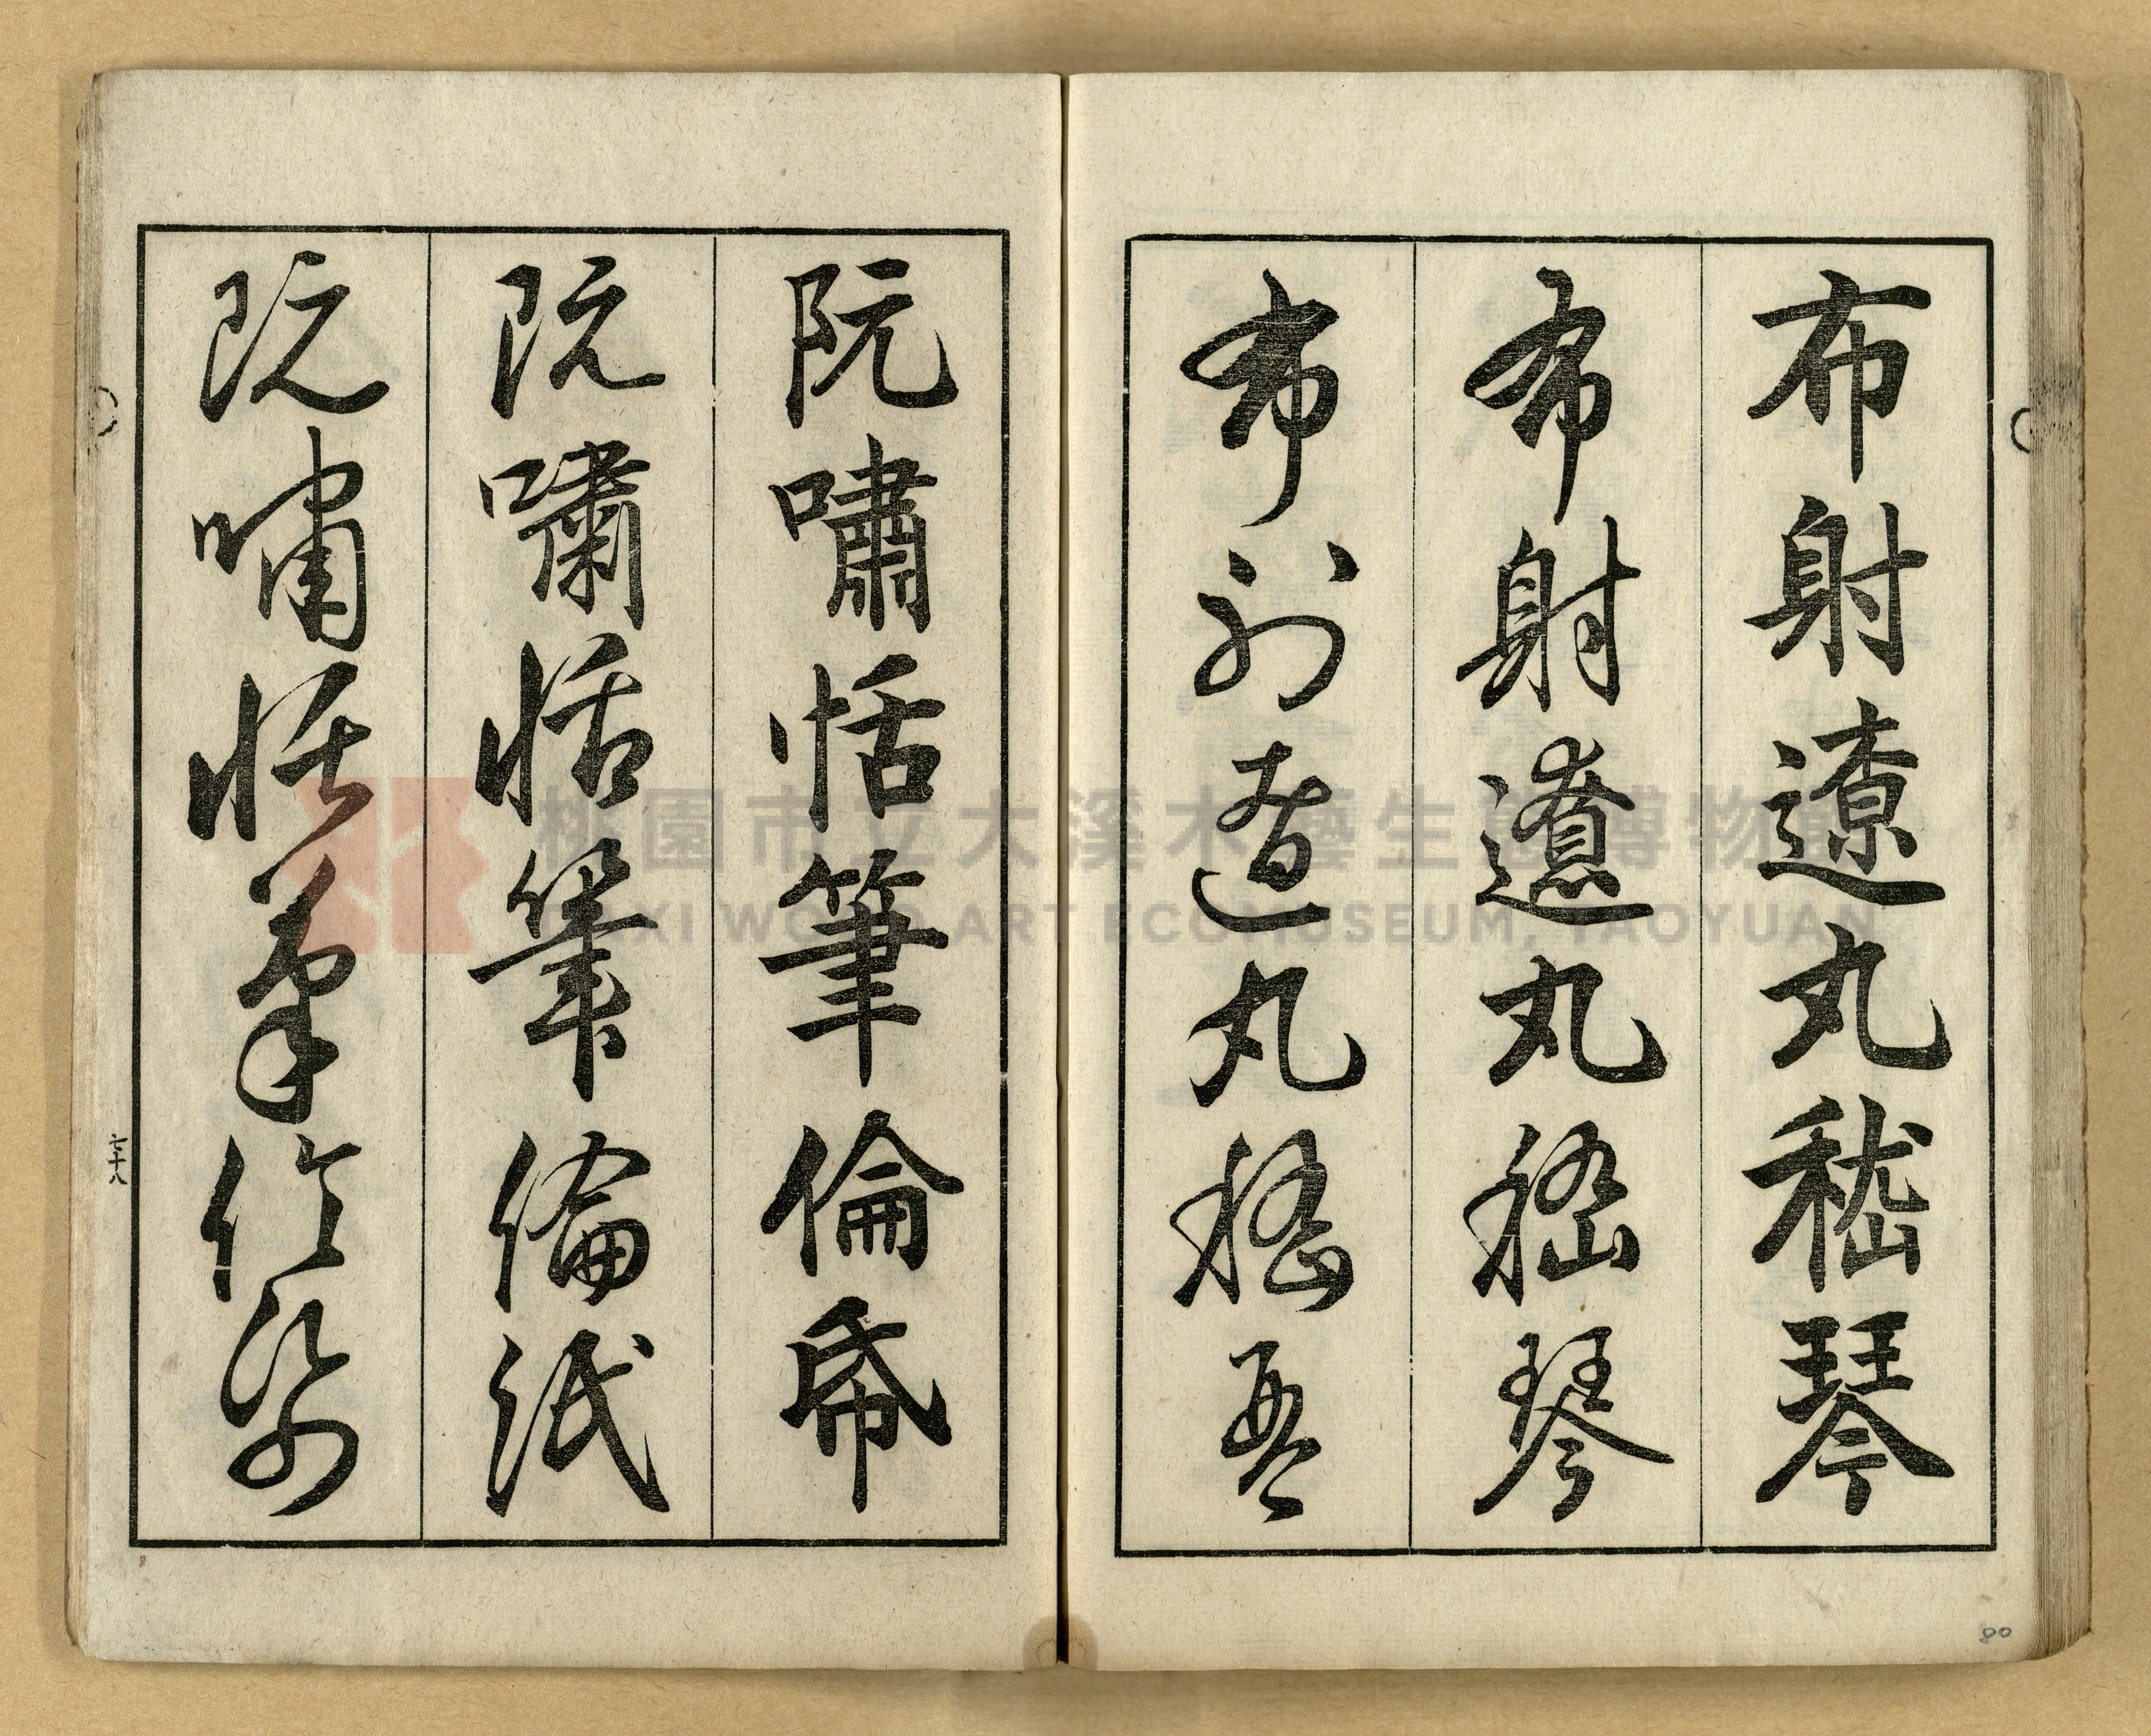 布射遼丸嵇琴
布射遼丸嵇琴
布射遼丸嵇琴
阮嘯恬筆倫帋
阮嘯恬筆倫紙
阮嘯恬筆倫紙
七十八
80
桃園市立大溪木藝生態博物館
DAXI WOOD ART ECOMUSEUM, TAOYUAN